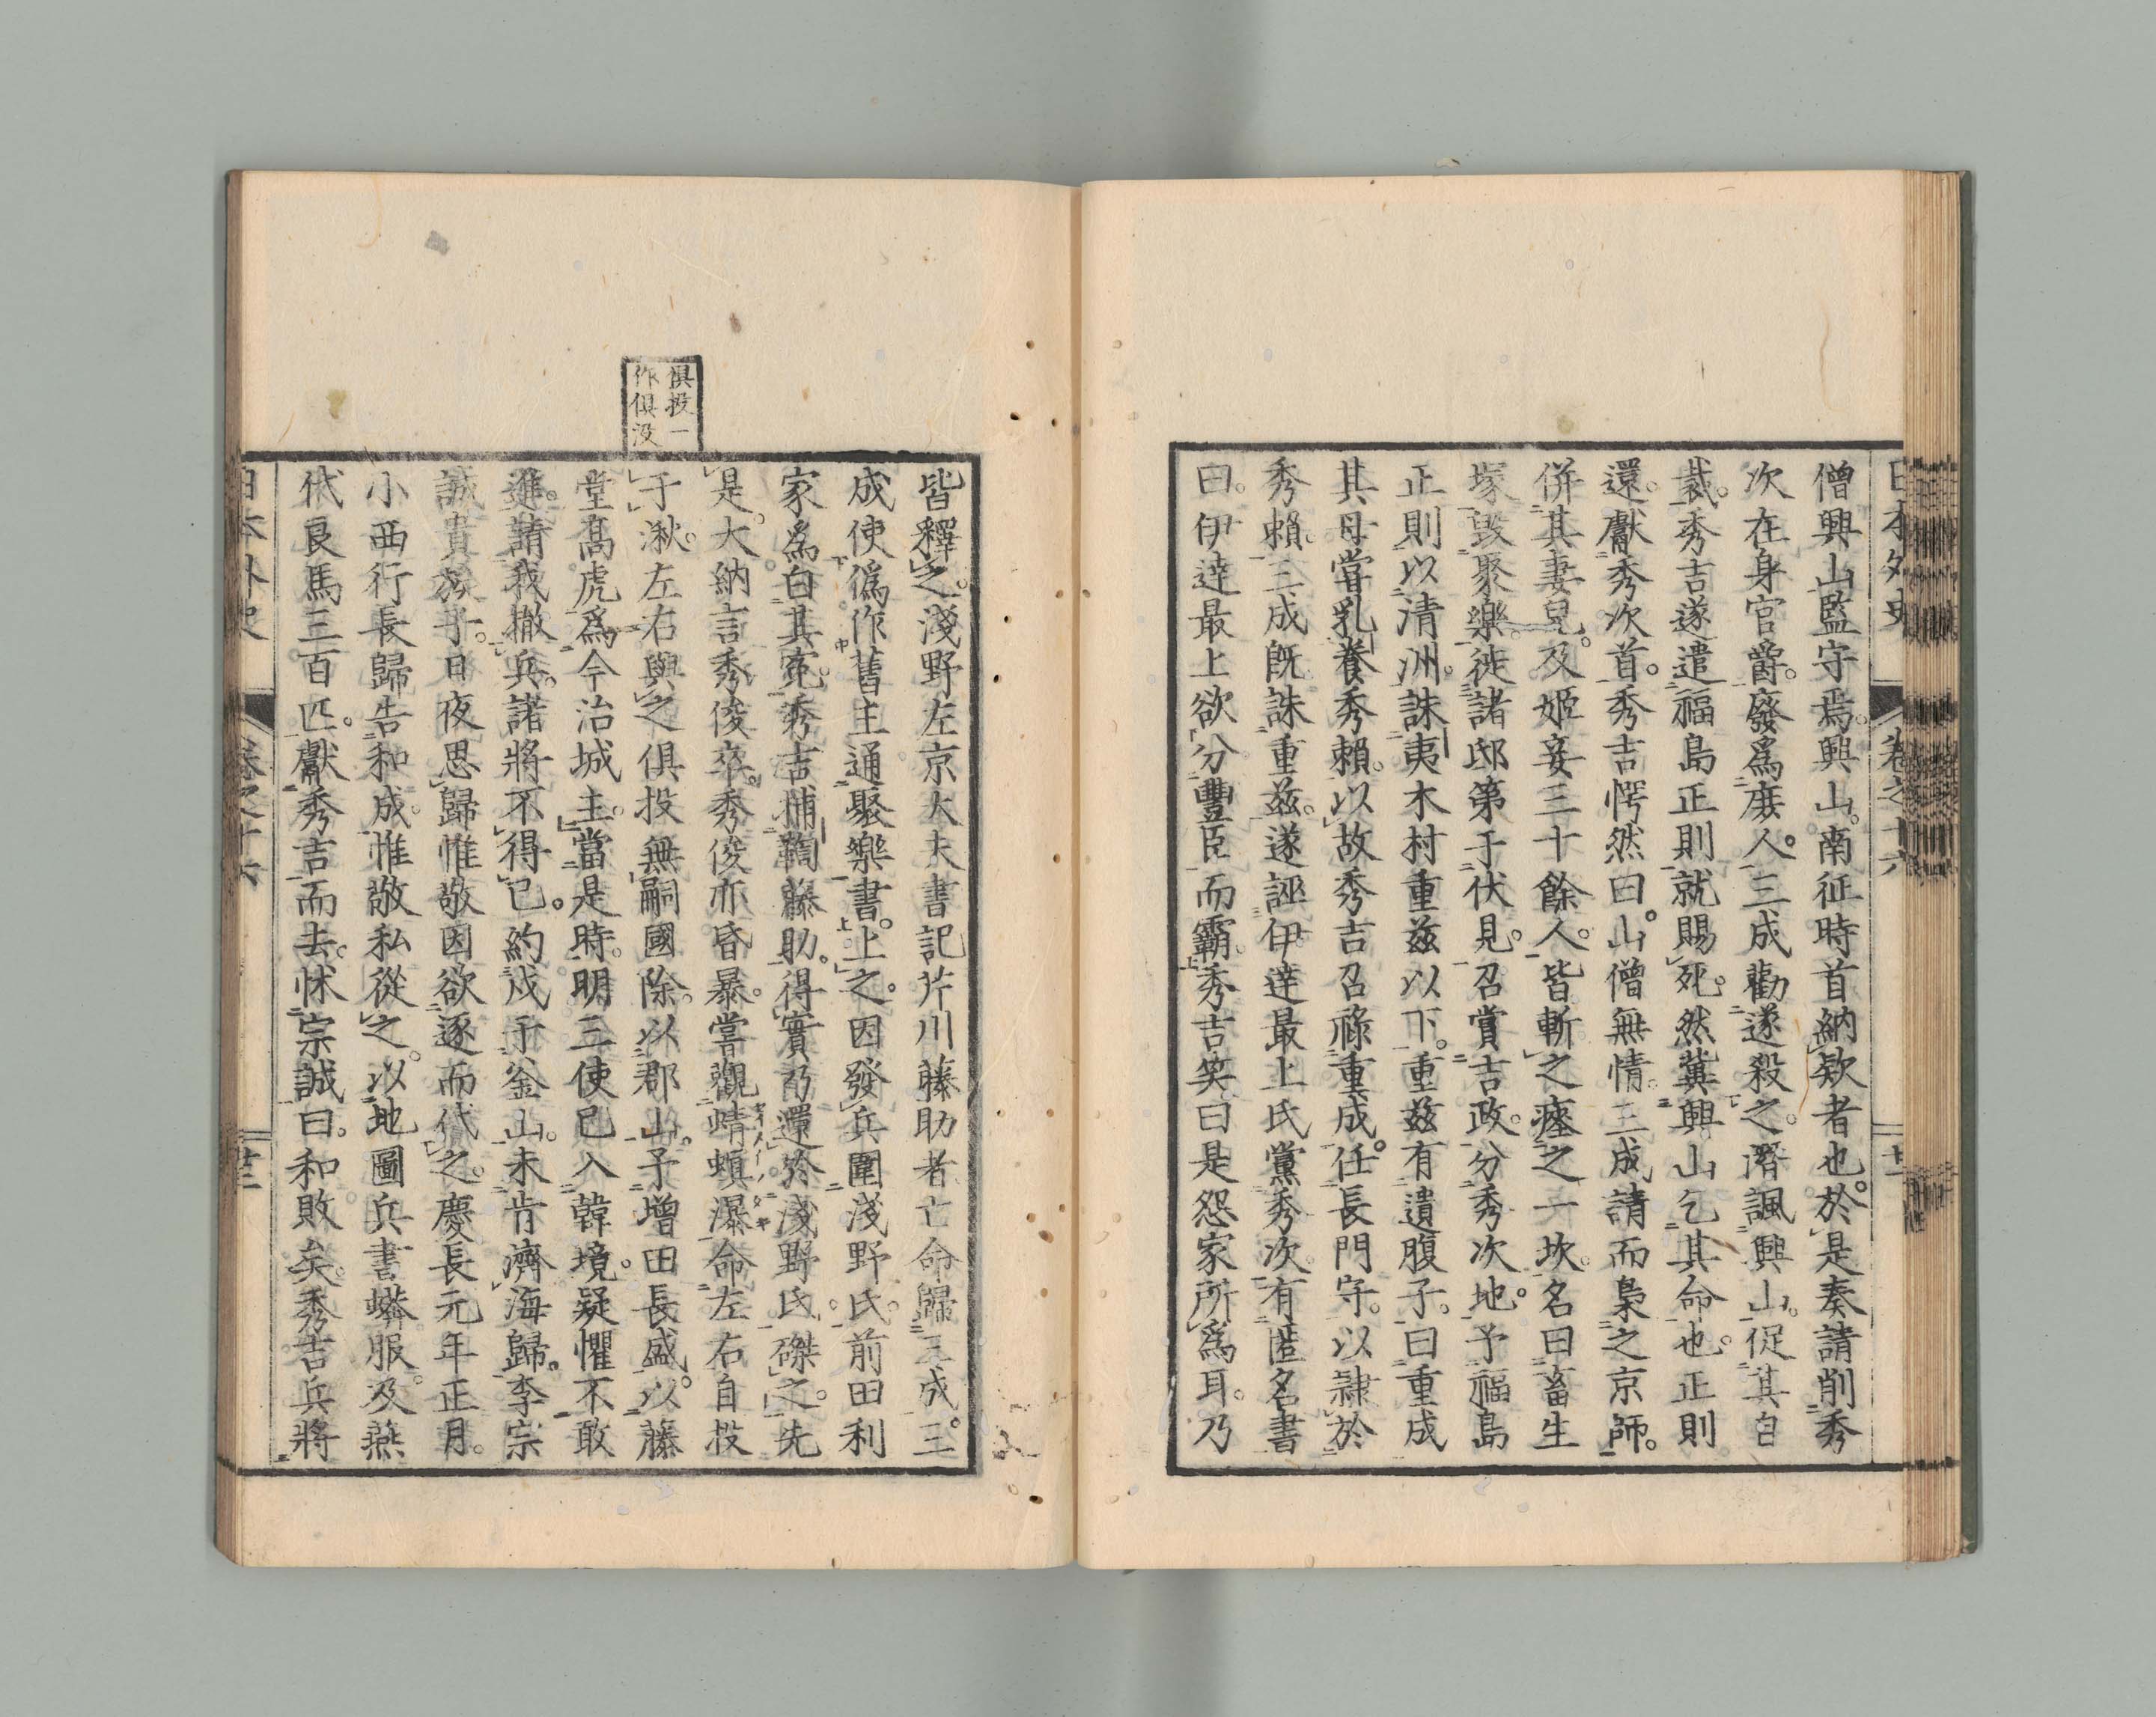 日本外史 卷之十六
僧興山監守焉。興山。南征時首納欵者也。於是奏請削秀
次在身官爵。廢爲庶人。三成勸遂殺之。潛諷興山。促其自
裁。秀吉遂遣福島正則就賜死。然冀興山乞其命也。正則
還。獻秀次首。秀吉愕然曰。山僧無情。三成請而梟之京師。
併其妻兒。及姬妾三十餘人。皆斬之瘞之一坎。名曰畜生
塚。毀聚樂。徙諸邸第于伏見。召賞吉政。分秀次地。予福島
正則以清洲。誅夷木村重茲以下。重茲有遺腹子。曰重成
其母嘗乳養秀賴。以故秀吉召祿重成。任長門守。以隷於
秀賴。三成既誅重茲。遂誣伊達最上氏黨秀次。有匿名書
曰。伊達最上欲分豐臣而霸。秀吉笑曰是怨家所爲耳。乃
俱投一
作俱沒
皆釋之。淺野左京大夫書記芹川藤助者亡命歸三成。三
成使僞作舊主通聚樂書。上之。因發兵圍淺野氏。前田利
家爲白其寃。秀吉捕鞫藤助。得實乃還於淺野氏。磔之。先
是。大納言秀俊卒。秀俊亦昏暴。嘗觀蜻螟瀑命左右自投
于湫。左右與之俱投無嗣國除。以郡山。予增田長盛。以藤
堂高虎爲今治城主。當是時。明三使已入韓境。疑懼不敢
進。請我撤兵。諸將不得已。約戍于釜山。未肯濟海歸。李宗
誠貴族子。日夜思歸惟敬因欲逐而代之。慶長元年正月。
小西行長歸告和成。惟敬私從之。以地圖兵書蟒服。及燕
代良馬三百匹。獻秀吉而去。怵宗誠曰。和敗矣。秀吉兵將
日本外史 卷之十六